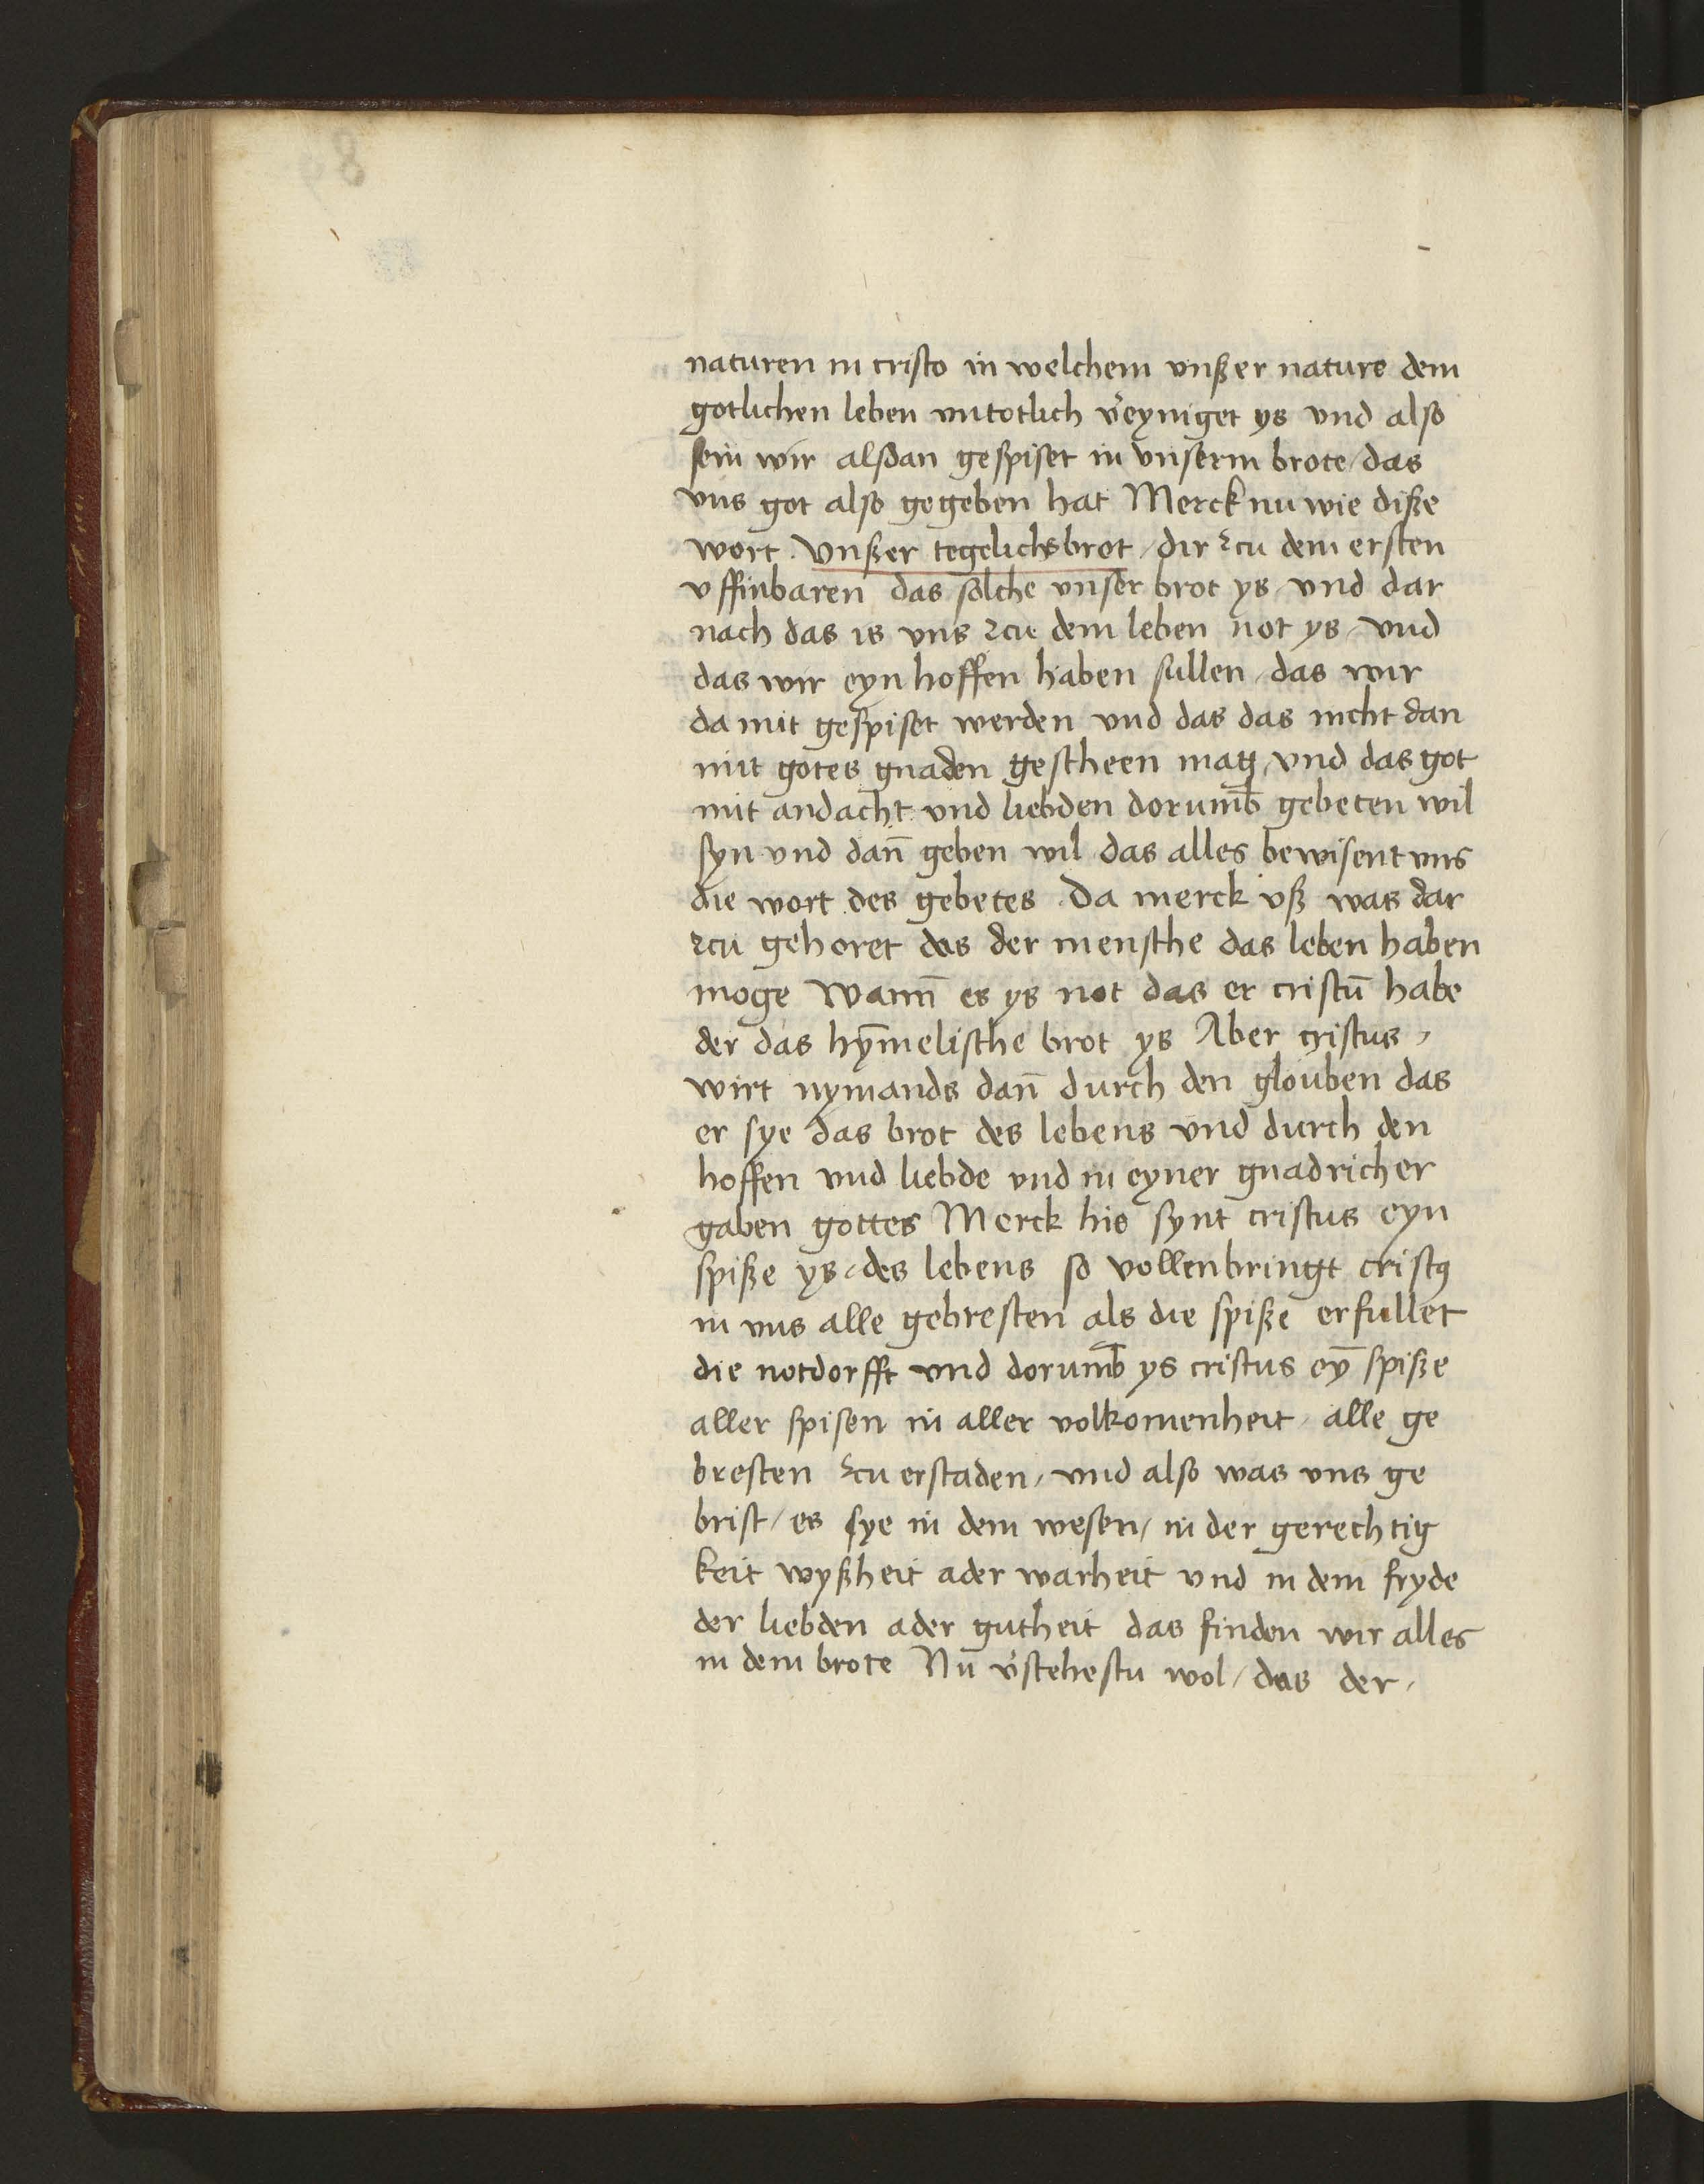 naturen in cristo in welchem vnßer nature dem
gotlichen leben vntotlich v̓eyniget ys vnd also
sein wir alsdan gespiset in vnserm brote / das
vns got also gegeben hat Merck nu wie diße
wort . Vnßer tegelichs brot / dir zcu dem ersten
vffinbaren das solche vnser brot ys / vnd dar
nach das is vns zcu dem leben not ys / vnd
das wir eyn hoffen haben sullen / das wir
da mit gespiset werden vnd das das nicht dan
mit gotes gnaden gescheen mag / vnd das got
mit andacht vnd liebden dorumb̄ gebeten wil
syn vnd dan̄ geben wil das alles bewisent vns
die wort des gebetes . Da merck vß was dar
zcu gehoret das der mensche das leben haben
moge Wann̄ es ys not das er cristū habe
der das hȳmelische brot ys Aber cristus /
wirt nymands dan̄ durch den glouben das
er sye das brot des lebens vnd durch den
hoffen vnd liebde vnd in eyner gnadricher
gaben gottes Merck hie synt cristus eyn
spiße ys / des lebens so vollenbringt cristꝰ
in vns alle gebresten als die spiße erfullet
die notdorfft vnd dorumb̄ ys cristus eȳ spiße
aller spisen in aller volkomenheit / alle ge
bresten zcu erstaden / vnd also was vns ge
brist / es sye in dem wesen / in der gerechtig
keit wyßheit ader warheit vnd in dem fryde
der liebden ader gutheit das finden wir alles
in dem brote Nu v̓stehestu wol / das der /